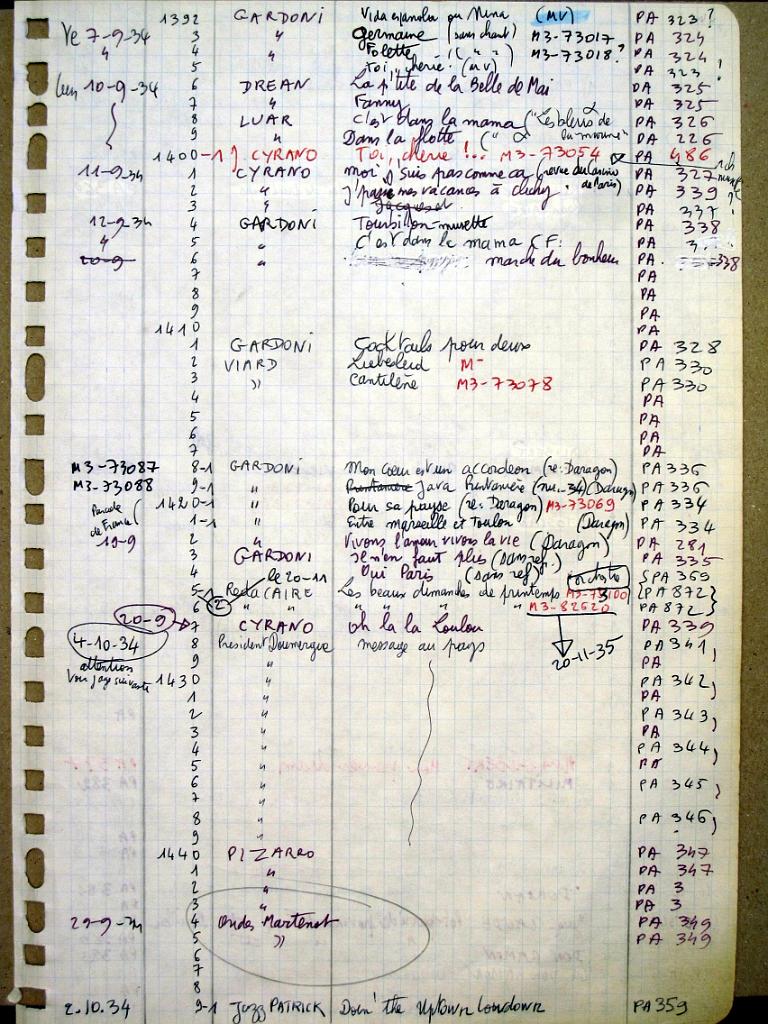 1392 GARDONI Vida española ou Nina (MV) PA 323 ?
Ve 7-9-34 3 " Germaine (sans chant) M3-73017 PA 324
" 4 " Folette " ( " " ) M3-73018 ? PA 324
5 Toi, chérie ! (MV) PA 323 ?
lun 10-9-34 6 DREAN La p'tite de la Belle de Mai PA 325
7 " Fanny PA 325
8 LUAR C'est dans la mama ("Les bleus de PA 326
9 " Dans la flotte ( " la marine" PA 226
1400-1 CYRANO Toi, chérie !... M3-73054 PA 486
11-9-34 1 CYRANO moi j'suis pas comme ça (revue du casino PA 327
2 " J'passe mes vacances à Clichy. de Paris) PA 339
3 " Jacquesot PA 337
12-9-34 4 GARDONI Tourbillon-musette PA 338
" 5 " C'est dans le mama CF: PA 3
20-9 6 " marche du bonheur PA 338
7 PA
8 PA
9 PA
1410 PA
1 GARDONI Cocktails pour deux PA 328
2 VIARD Liebesleid M- PA 330
3 )) Cantilène M3-73078 PA 330
4 PA
5 PA
6 PA
7 PA
M3-73087 8-1 GARDONI Mon Coeur est un accordeon (re: Daragon) PA 336
M3-73088 9-1 " Printanière Java Printanière (nu.-34) (Daragon) PA 336
Parade de France ( 1420-1 " Pour sa payse (re: Daragon) M3-73069 PA 334
1-1 " Entre marseille et Toulon (Daragon) PA 334
19-9 2 " Vivons l'amour vivons la vie (Daragon) PA 281
3 GARDONI Je n'en faut plus (sans ref.) PA 335
4 le 20-11 Oui Paris (sans ref) orchestre {PA 369
5 Reda CAIRE Les beaux dimanches de printemps M3-73100 {PA 872}
6 2 " " " " " M3-82620 PA 872}
20-9 7 CYRANO oh la la Loulou PA 339
4-10-34 8 President Doumergue message au pays 20-11-35 PA 341,
attention 9 " PA
Voir page suivante 1430 " PA 342,
1 " PA
2 " PA 343,
3 " PA
4 " PA 344,
5 " PA
6 " PA 345,
7 "
8 " PA 346,
9 "
1440 PIZARRO PA 347
1 " PA 347
2 " PA 3
3 " PA 3
29-9-34 4 Ondes Martenot PA 349
5 )) PA 349
6
7
8
2.10.34 9-1 Jazz PATRICK Doin' the Uptown Lowdown PA 359